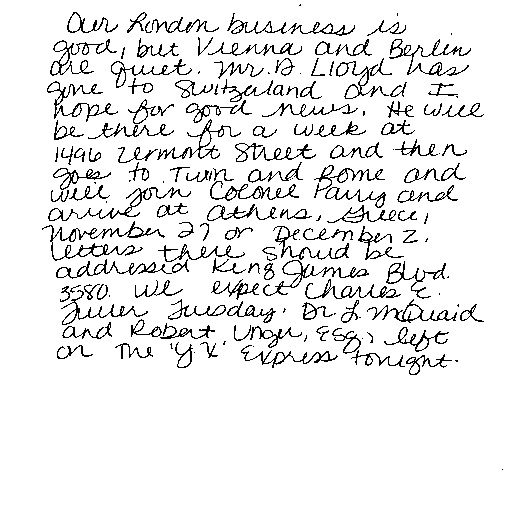 Our London business is
good, but Vienna and Berlin
are quiet. Mr. D. Lloyd has
gone to Switzerland and I
hope for good news. He will
be there for a week at
1496 Zermont Street and then
goes to Turin and Rome and
will join Colonel Parry and
arrive at Athens, Greece,
November 27 or December 2.
Letters there should be
addressed King James Blvd.
3580. We expect Charles E.
Fuller Tuesday. Dr. L. McQuaid
and Robert Unger, Esq., left
on The 'Y.X.' Express tonight.